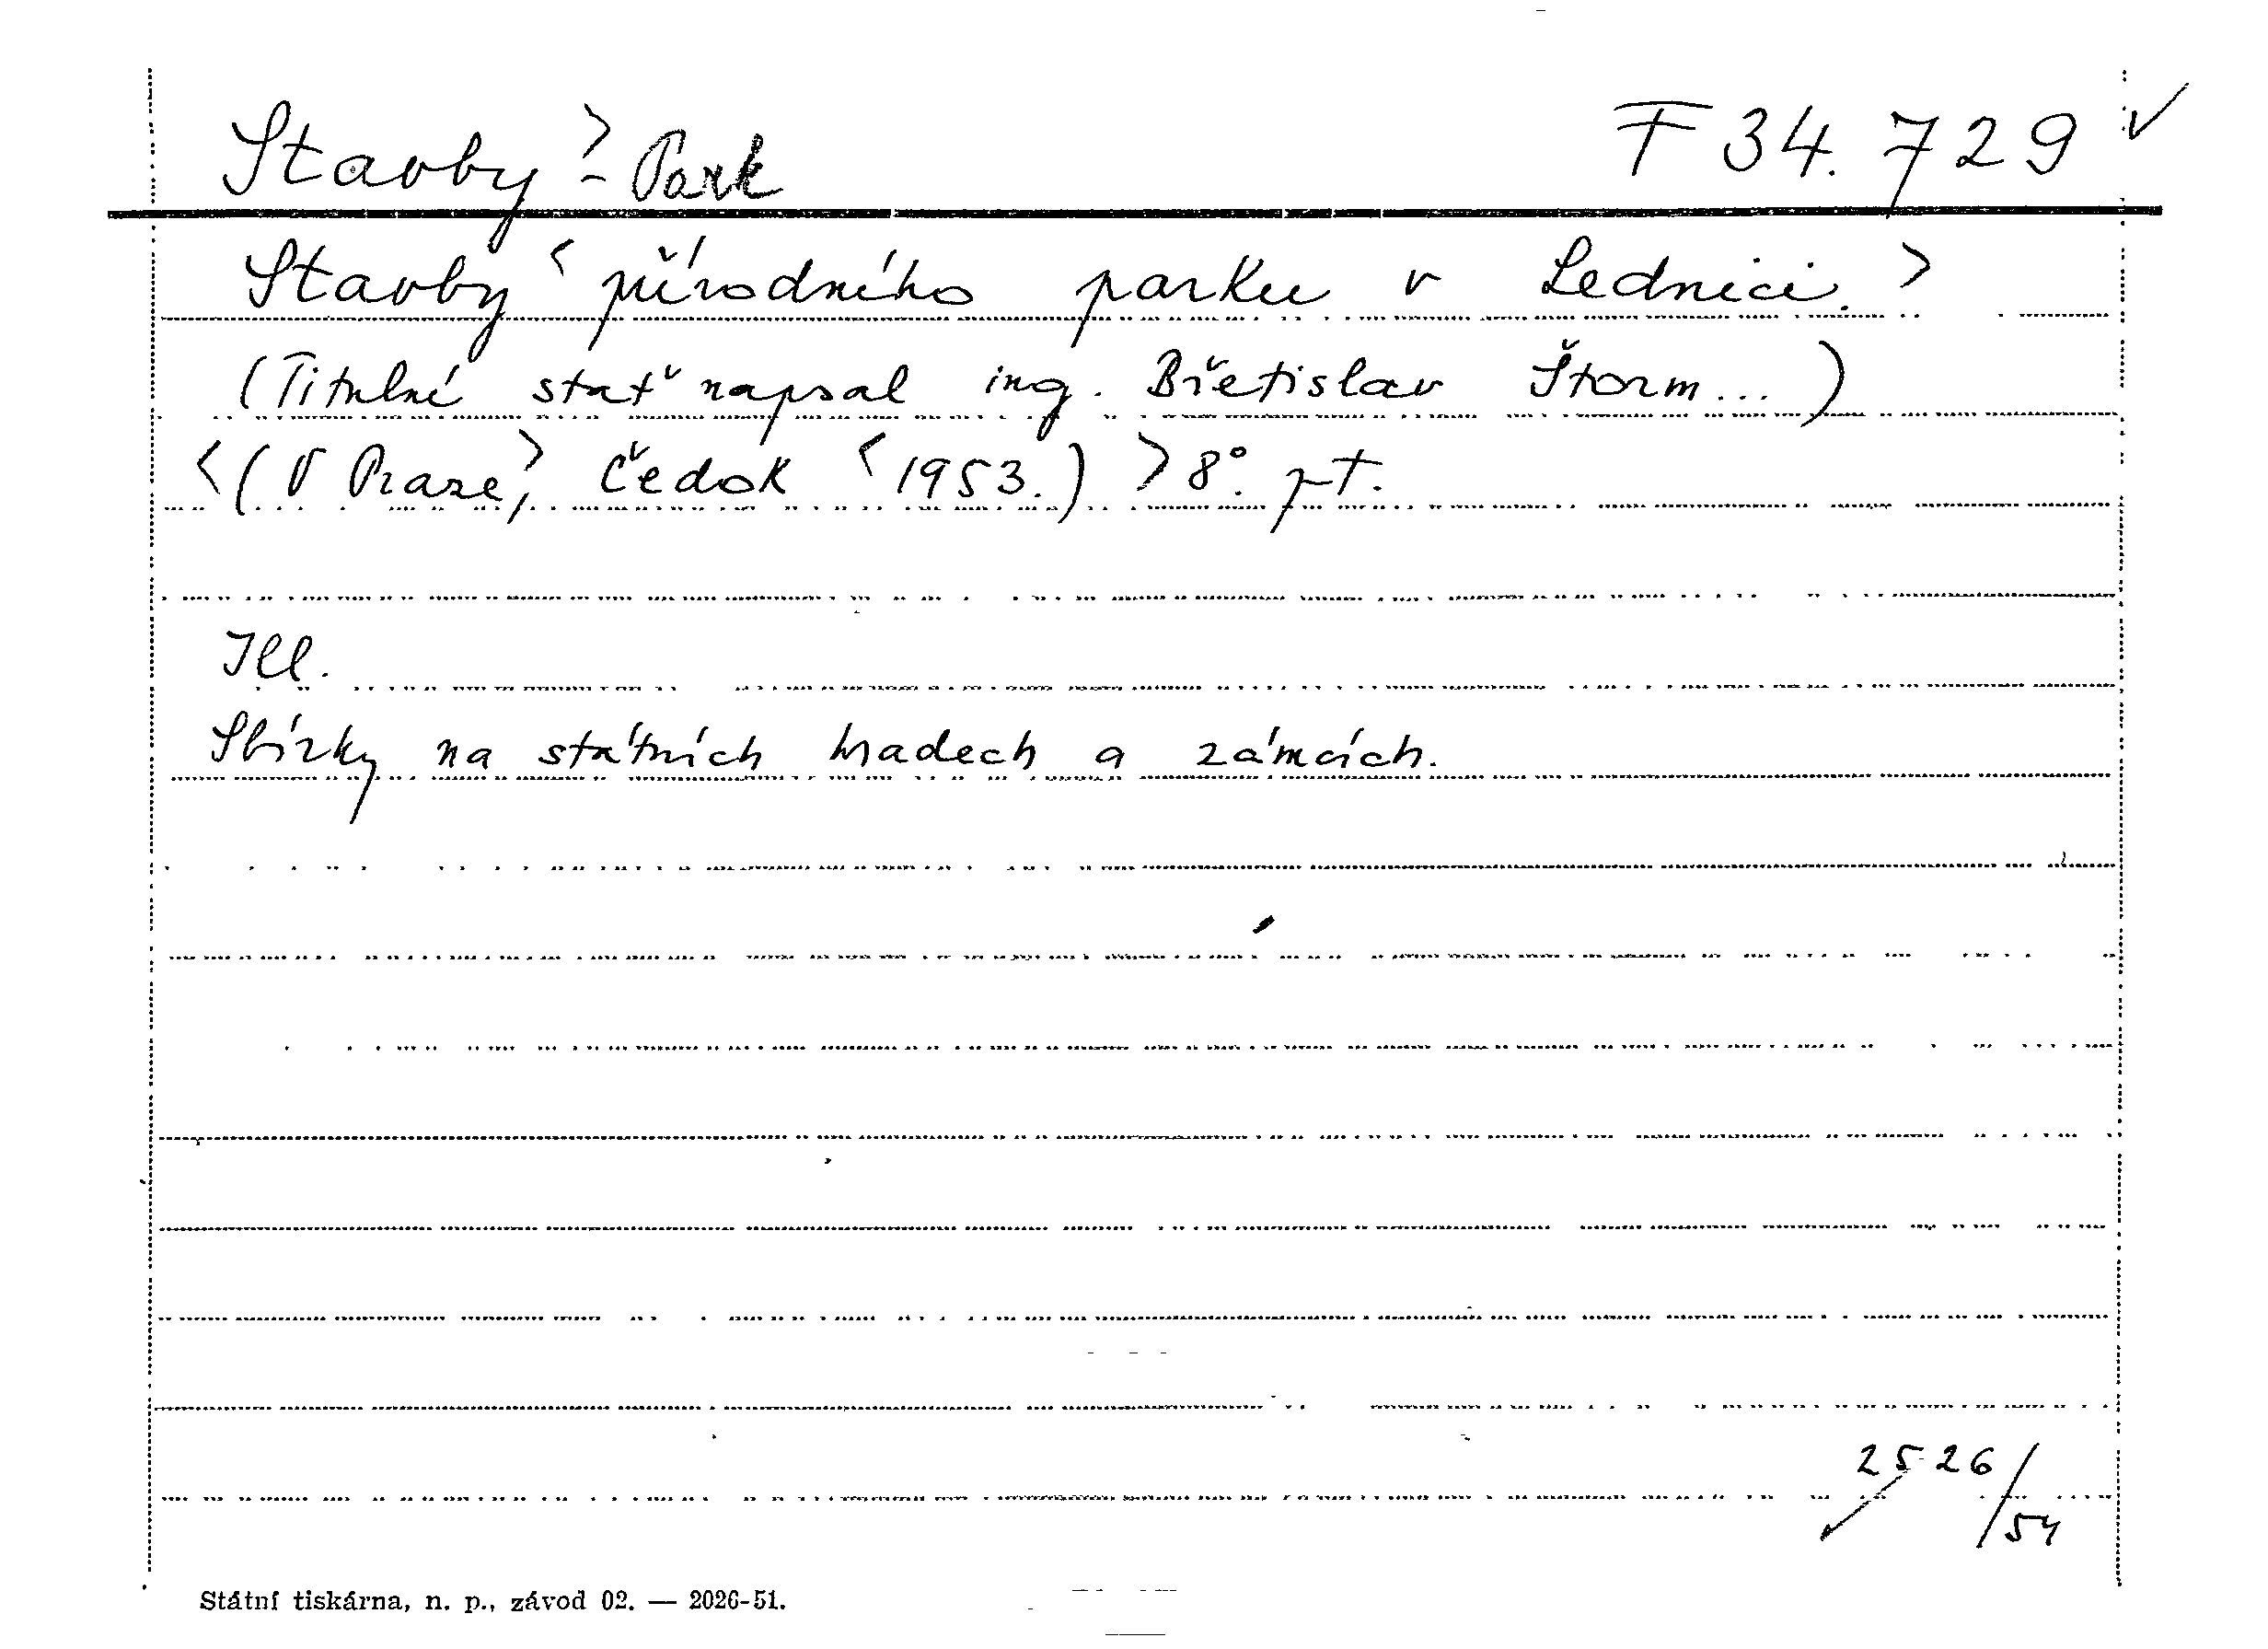 Stavby > - Park F 34.729 ✓
Stavby < přírodního parku v Lednici. >
(Titulní stať napsal ing. Břetislav Štorm...)
< (V Praze, > Čedok < 1953.) > 8°. pt.
Ill.
Sbírky na státních hradech a zámcích.
2526/54
Státní tiskárna, n. p., závod 02. — 2026-51.